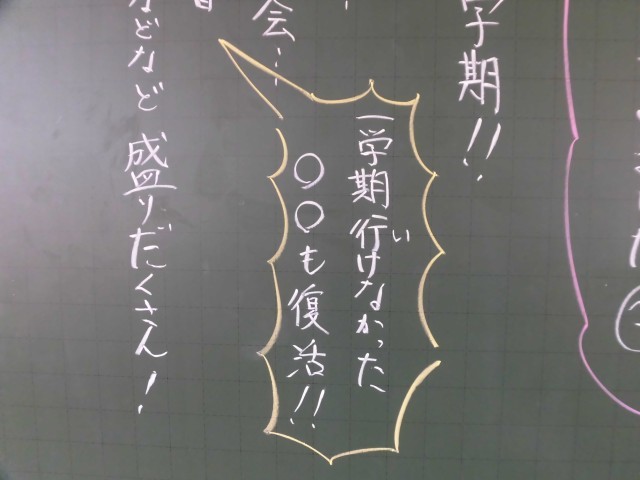 学期!!
一学期行けなかった
い
○○も復活!!
会…
などなど 盛りだくさん!